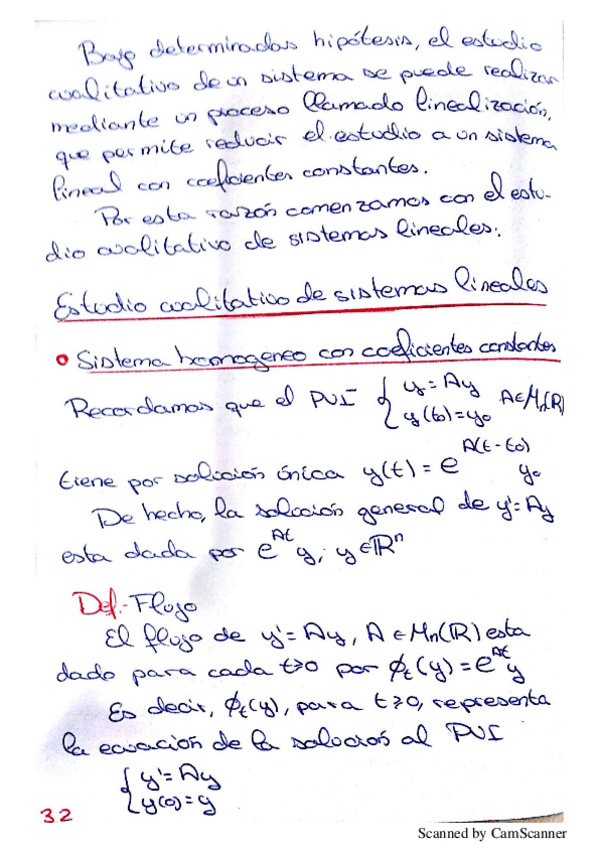 Bajo determinadas hipótesis, el estudio
cualitativo de un sistema se puede realizar
mediante un proceso llamado linealización,
que permite reducir el estudio a un sistema
lineal con coeficientes constantes.
Por esta razón comenzamos con el estu-
dio cualitativo de sistemas lineales:
Estudio cualitativo de sistemas lineales
• Sistema homogeneo con coeficientes constantes
Recordamos que el PVI { y' = Ay  y(t0) = y0  A∈Mn(R)
tiene por solución única y(t) = e^{A(t-t0)} y0
De hecho, la solución general de y' = Ay
esta dada por e^{At} y, y∈ℝ^n
Def.- Flujo
El flujo de y' = Ay, A ∈ Mn(ℝ) esta
dado para cada t≥0 por ϕt(y) = e^{At} y
Es decir, ϕt(y), para t≥0, representa
la ecuación de la solución al PVI
{ y' = Ay
y(0) = y
32
Scanned by CamScanner